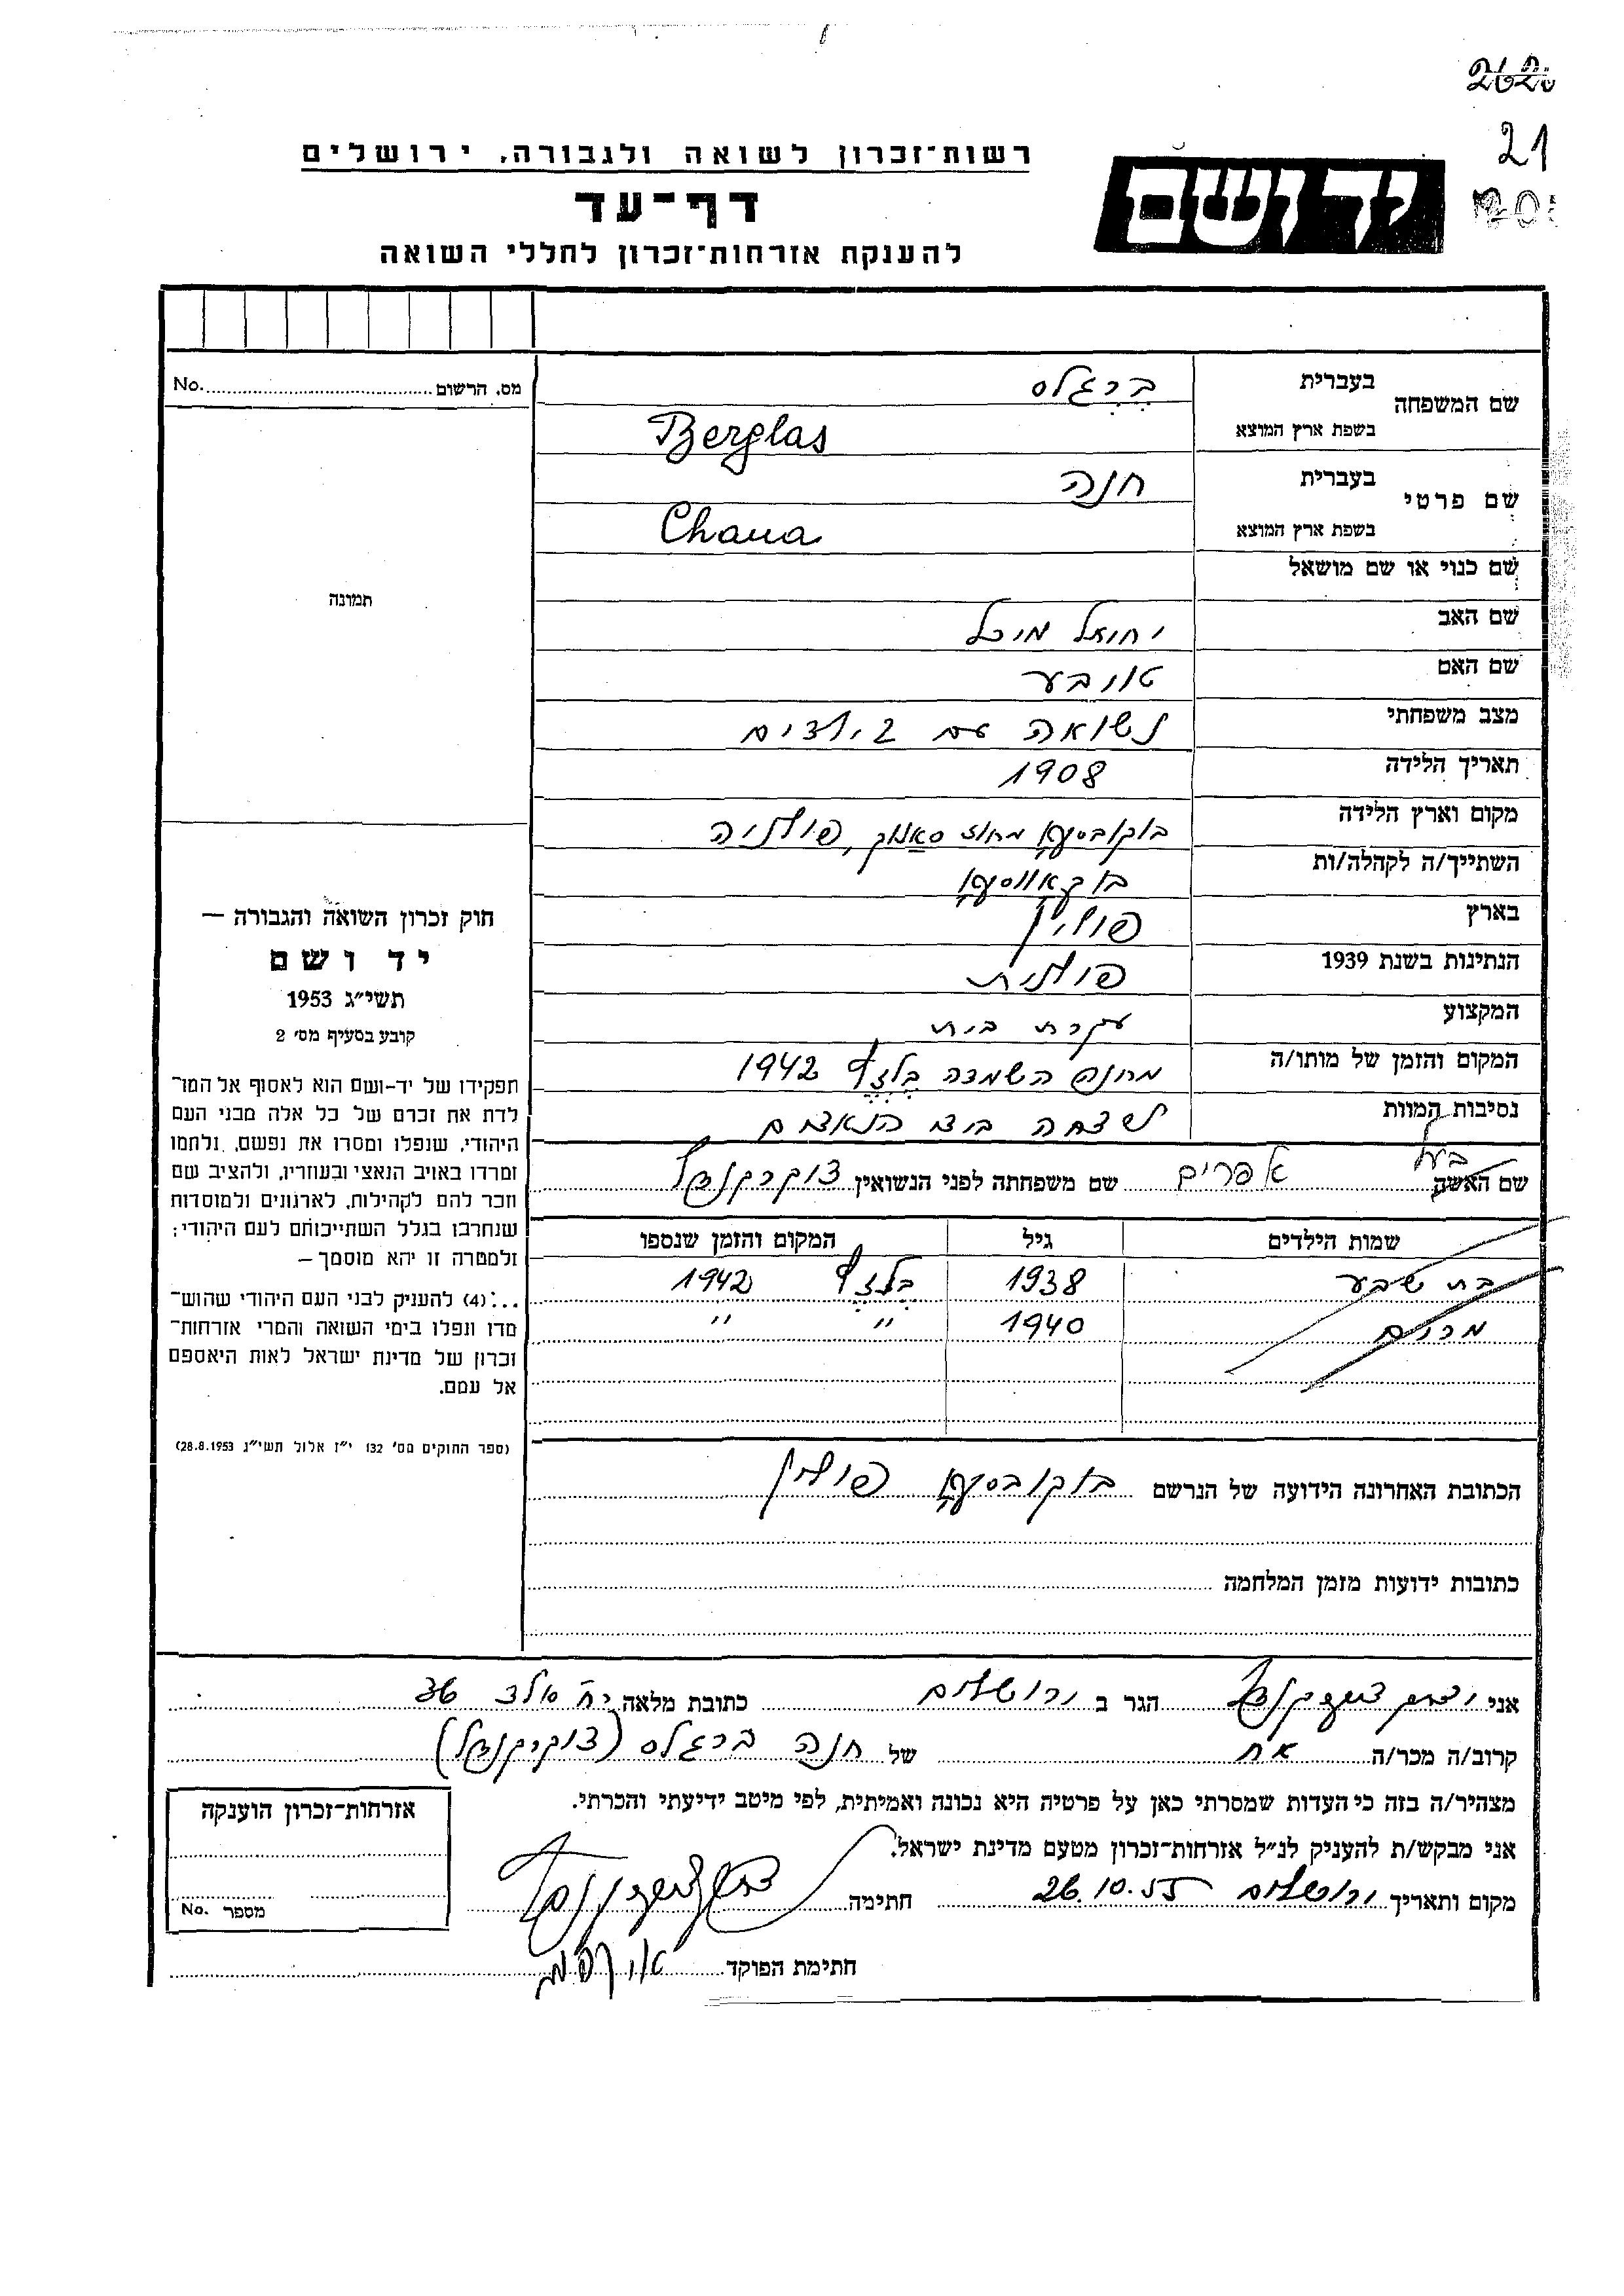 2620
21
רשות־זכרון לשואה ולגבורה, ירושלים
יד ושם
דף־עד
להענקת אזרחות־זכרון לחללי השואה
מס. הרשום No.
שם המשפחה בעברית ברגלס
בשפת ארץ המוצא Berglas
שם פרטי בעברית חנה
בשפת ארץ המוצא Chana
שם כנוי או שם מושאל
תמונה
שם האב יחיאל מיכל
שם האם טויבע
מצב משפחתי נשואה עם 2 ילדים
תאריך הלידה 1908
מקום וארץ הלידה בוקובסקו מחוז סאנוק, פולניה
השתייך/ה לקהלה/ות
בארץ פולין
הנתינות בשנת 1939 פולנית
המקצוע עקרת בית
המקום והזמן של מותו/ה מחנה השמדה בלזץ 1942
נסיבות המוות
שם האשה בעל אפרים שם משפחתה לפני הנשואין צוקרקנדל
שמות הילדים גיל המקום והזמן שנספו
בת שבע 1938 בלזץ 1942
מרים 1940 " "
הכתובת האחרונה הידועה של הנרשם בוקובסקו פולין
כתובות ידועות מזמן המלחמה
חוק זכרון השואה והגבורה —
יד ושם
תשי״ג 1953
קובע בסעיף מס׳ 2
תפקידו של יד־ושם הוא לאסוף אל המו־
לדת את זכרם של כל אלה מבני העם
היהודי, שנפלו ומסרו את נפשם, נלחמו
ומרדו באויב הנאצי ובעוזריו, ולהציב שם
וזכר להם לקהילות, לארגונים ולמוסדות
שנחרבו בגלל השתייכותם לעם היהודי;
ולמטרה זו יהא מוסמך —
...(4) להעניק לבני העם היהודי שהוש־
מדו ונפלו בימי השואה והמרי אזרחות־
זכרון של מדינת ישראל לאות היאספם
אל עמם.
(ספר החוקים מס׳ 132 י״ז אלול תשי״ג 28.8.1953)
אני צוקרקנדל הגר ב ירושלים כתובת מלאה
קרוב/ה מכר/ה אח של חנה ברגלס (צוקרקנדל)
מצהיר/ה בזה כי העדות שמסרתי כאן על פרטיה היא נכונה ואמיתית, לפי מיטב ידיעתי והכרתי.
אני מבקש/ת להעניק לנ״ל אזרחות־זכרון מטעם מדינת ישראל.
מקום ותאריך ירושלים 26.10.55 חתימה
חתימת הפוקד
אזרחות־זכרון הוענקה
מספר No.